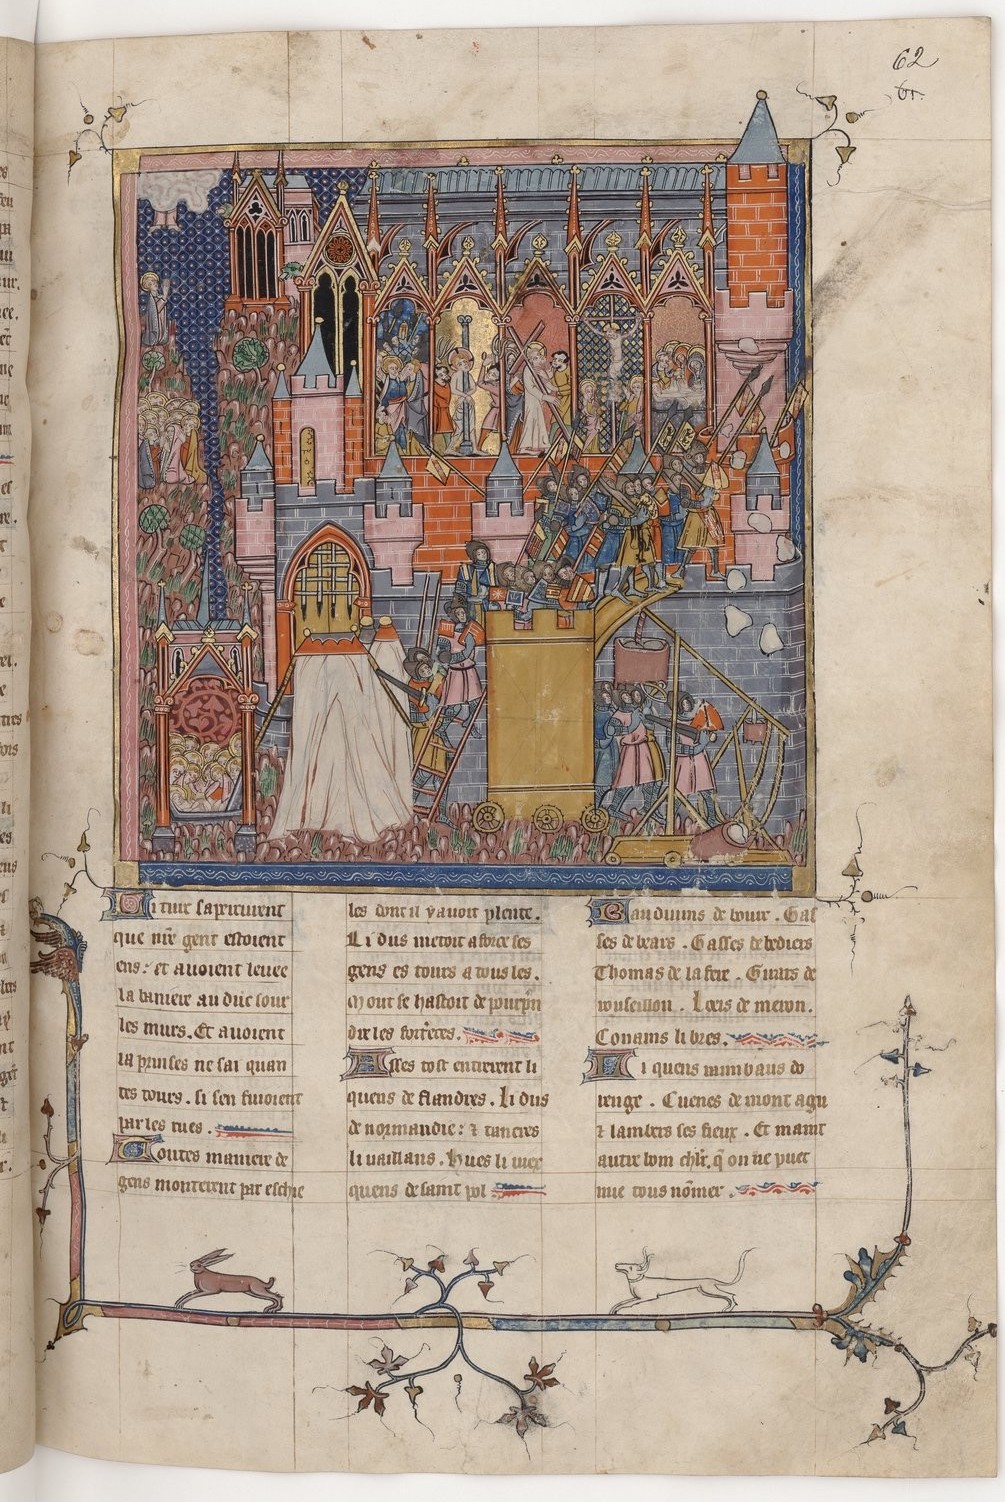 62
Li turc sapercurent
que nr̃e gent estoient
ens: et avoient levee
la baniere au duc sour
les murs. Et avoient
ia prinses ne sai quan
tes tours. si sen fuioient
par les rues.
Toutes maniere de
gens monterent par eschie
les dont il y avoit plente.
Li dus metoit a force ses
gens es tours a tous les.
Mout se hastoit de pourpn
dre les forteces.
Asses tost entrerent li
quens de flandres. Li dus
de normandie: ⁊ tancres
li vaillans. Hues li viex
quens de saint pol
Bauduins de bourc. Gas
ses de bears. Gasses de bediers
Thomas de la fere. Girars de
rouseillon. Loeis de mcon.
Conains li bres.
Li quens raimbaus do
renge. Cuenes de mont agu
⁊ lambers ses fieux. Et maint
autre bom chlr. q̃ on ne puet
mie tous nõmer.